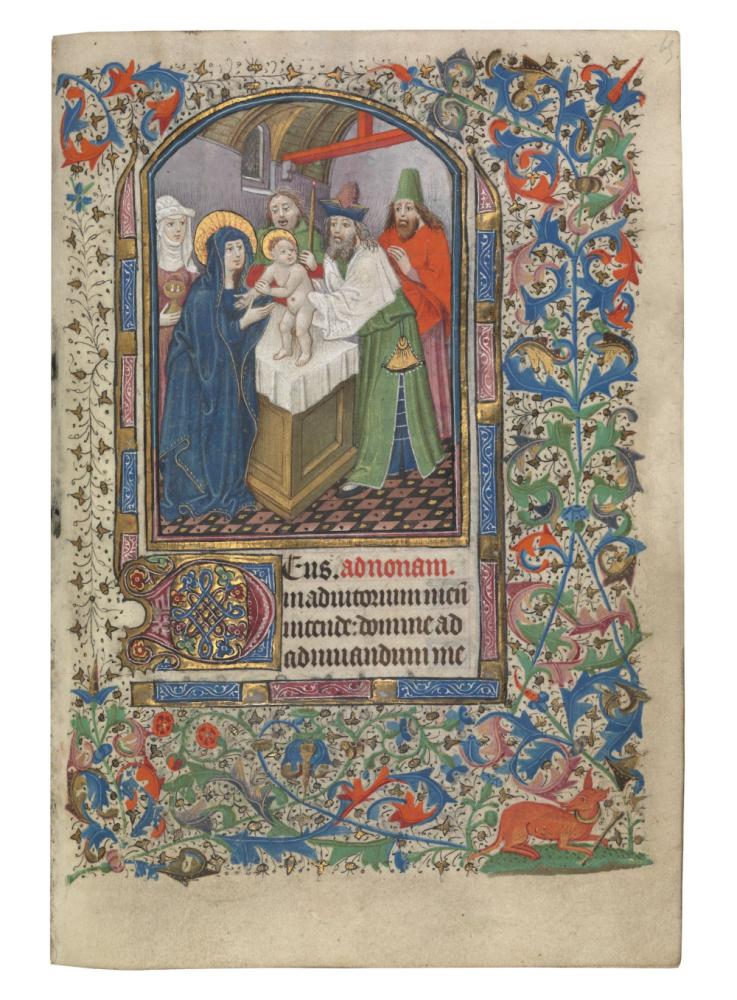 Deus. ad nonam.
in adiutorium meū
intende: domine ad
adiuuandum me